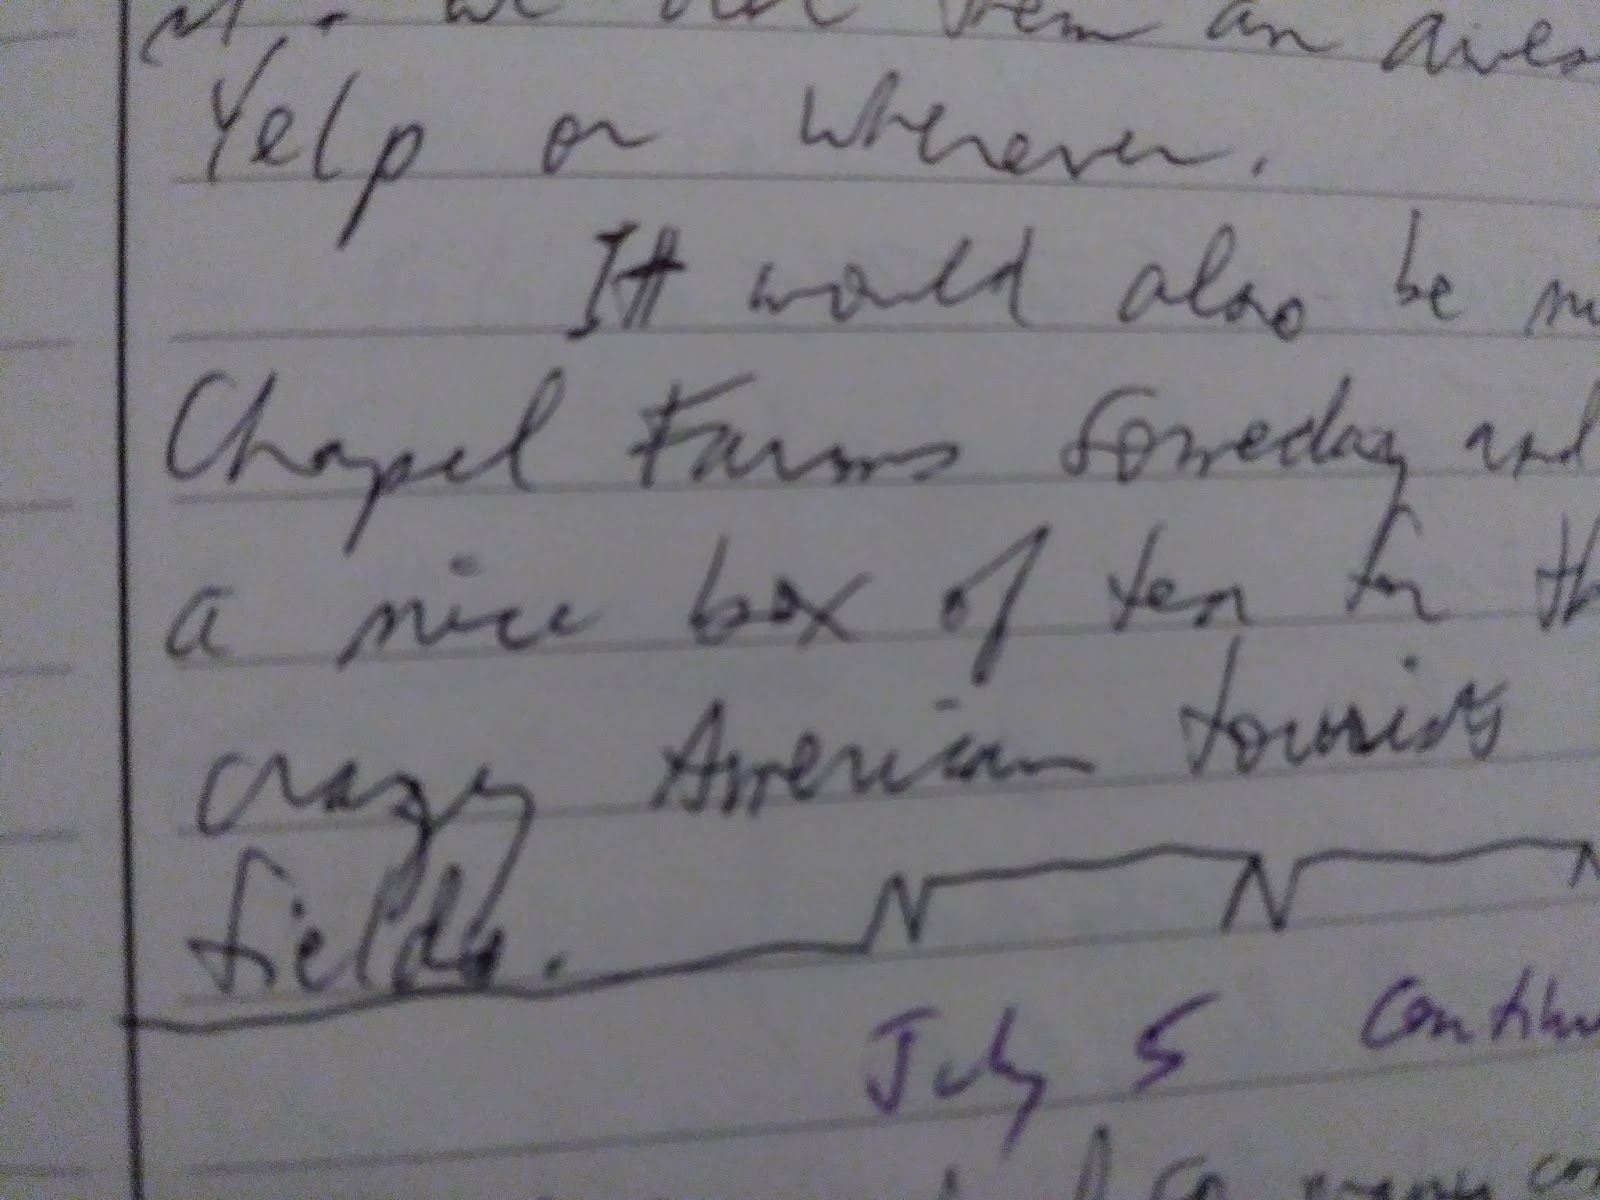 an
Yelp or wherever.
It would also be
Chapel Farms Someday and
a nice box of tea for
crazy American tourists
fields.
July 5
so many